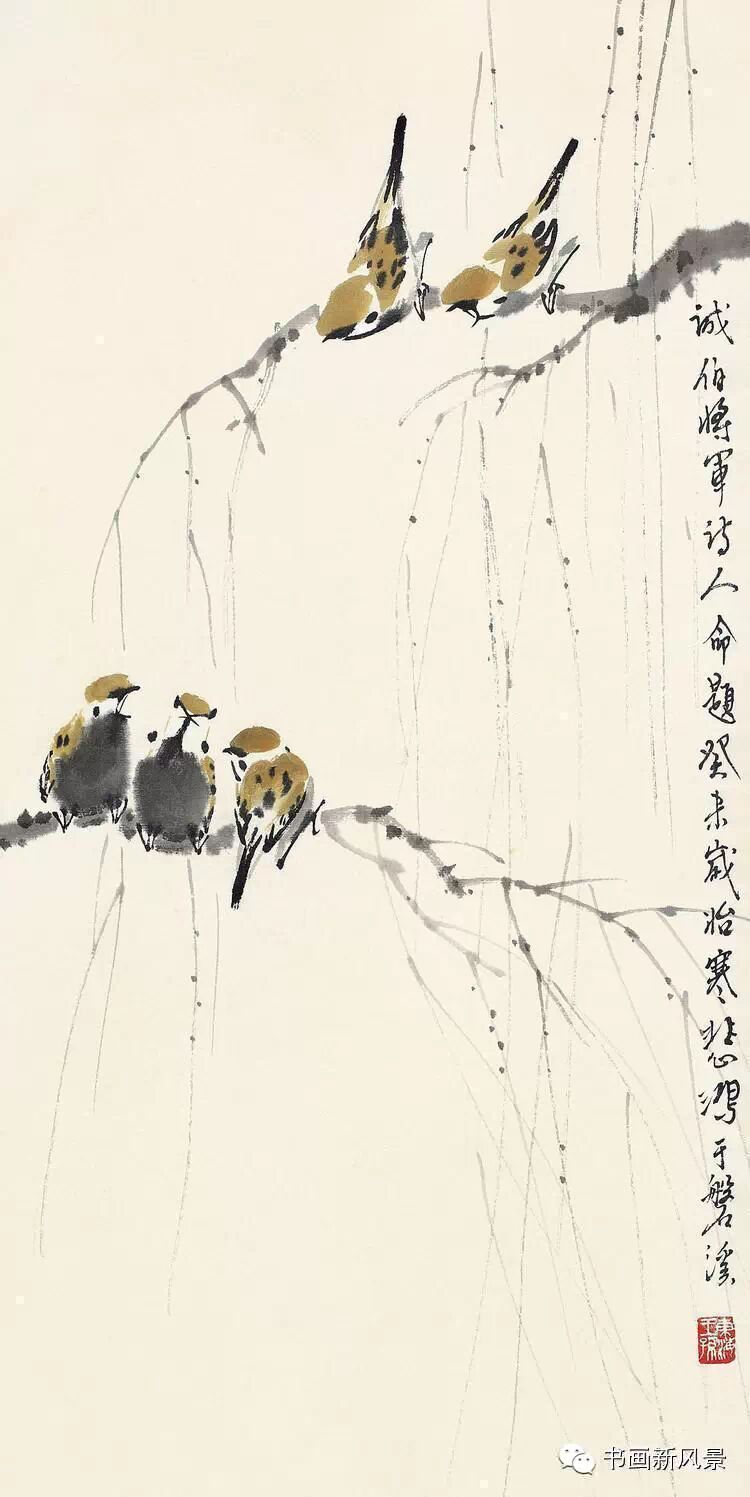 诚伯将军诗人命题癸未岁始寒悲鸿于磐溪
東海王孫
书画新风景